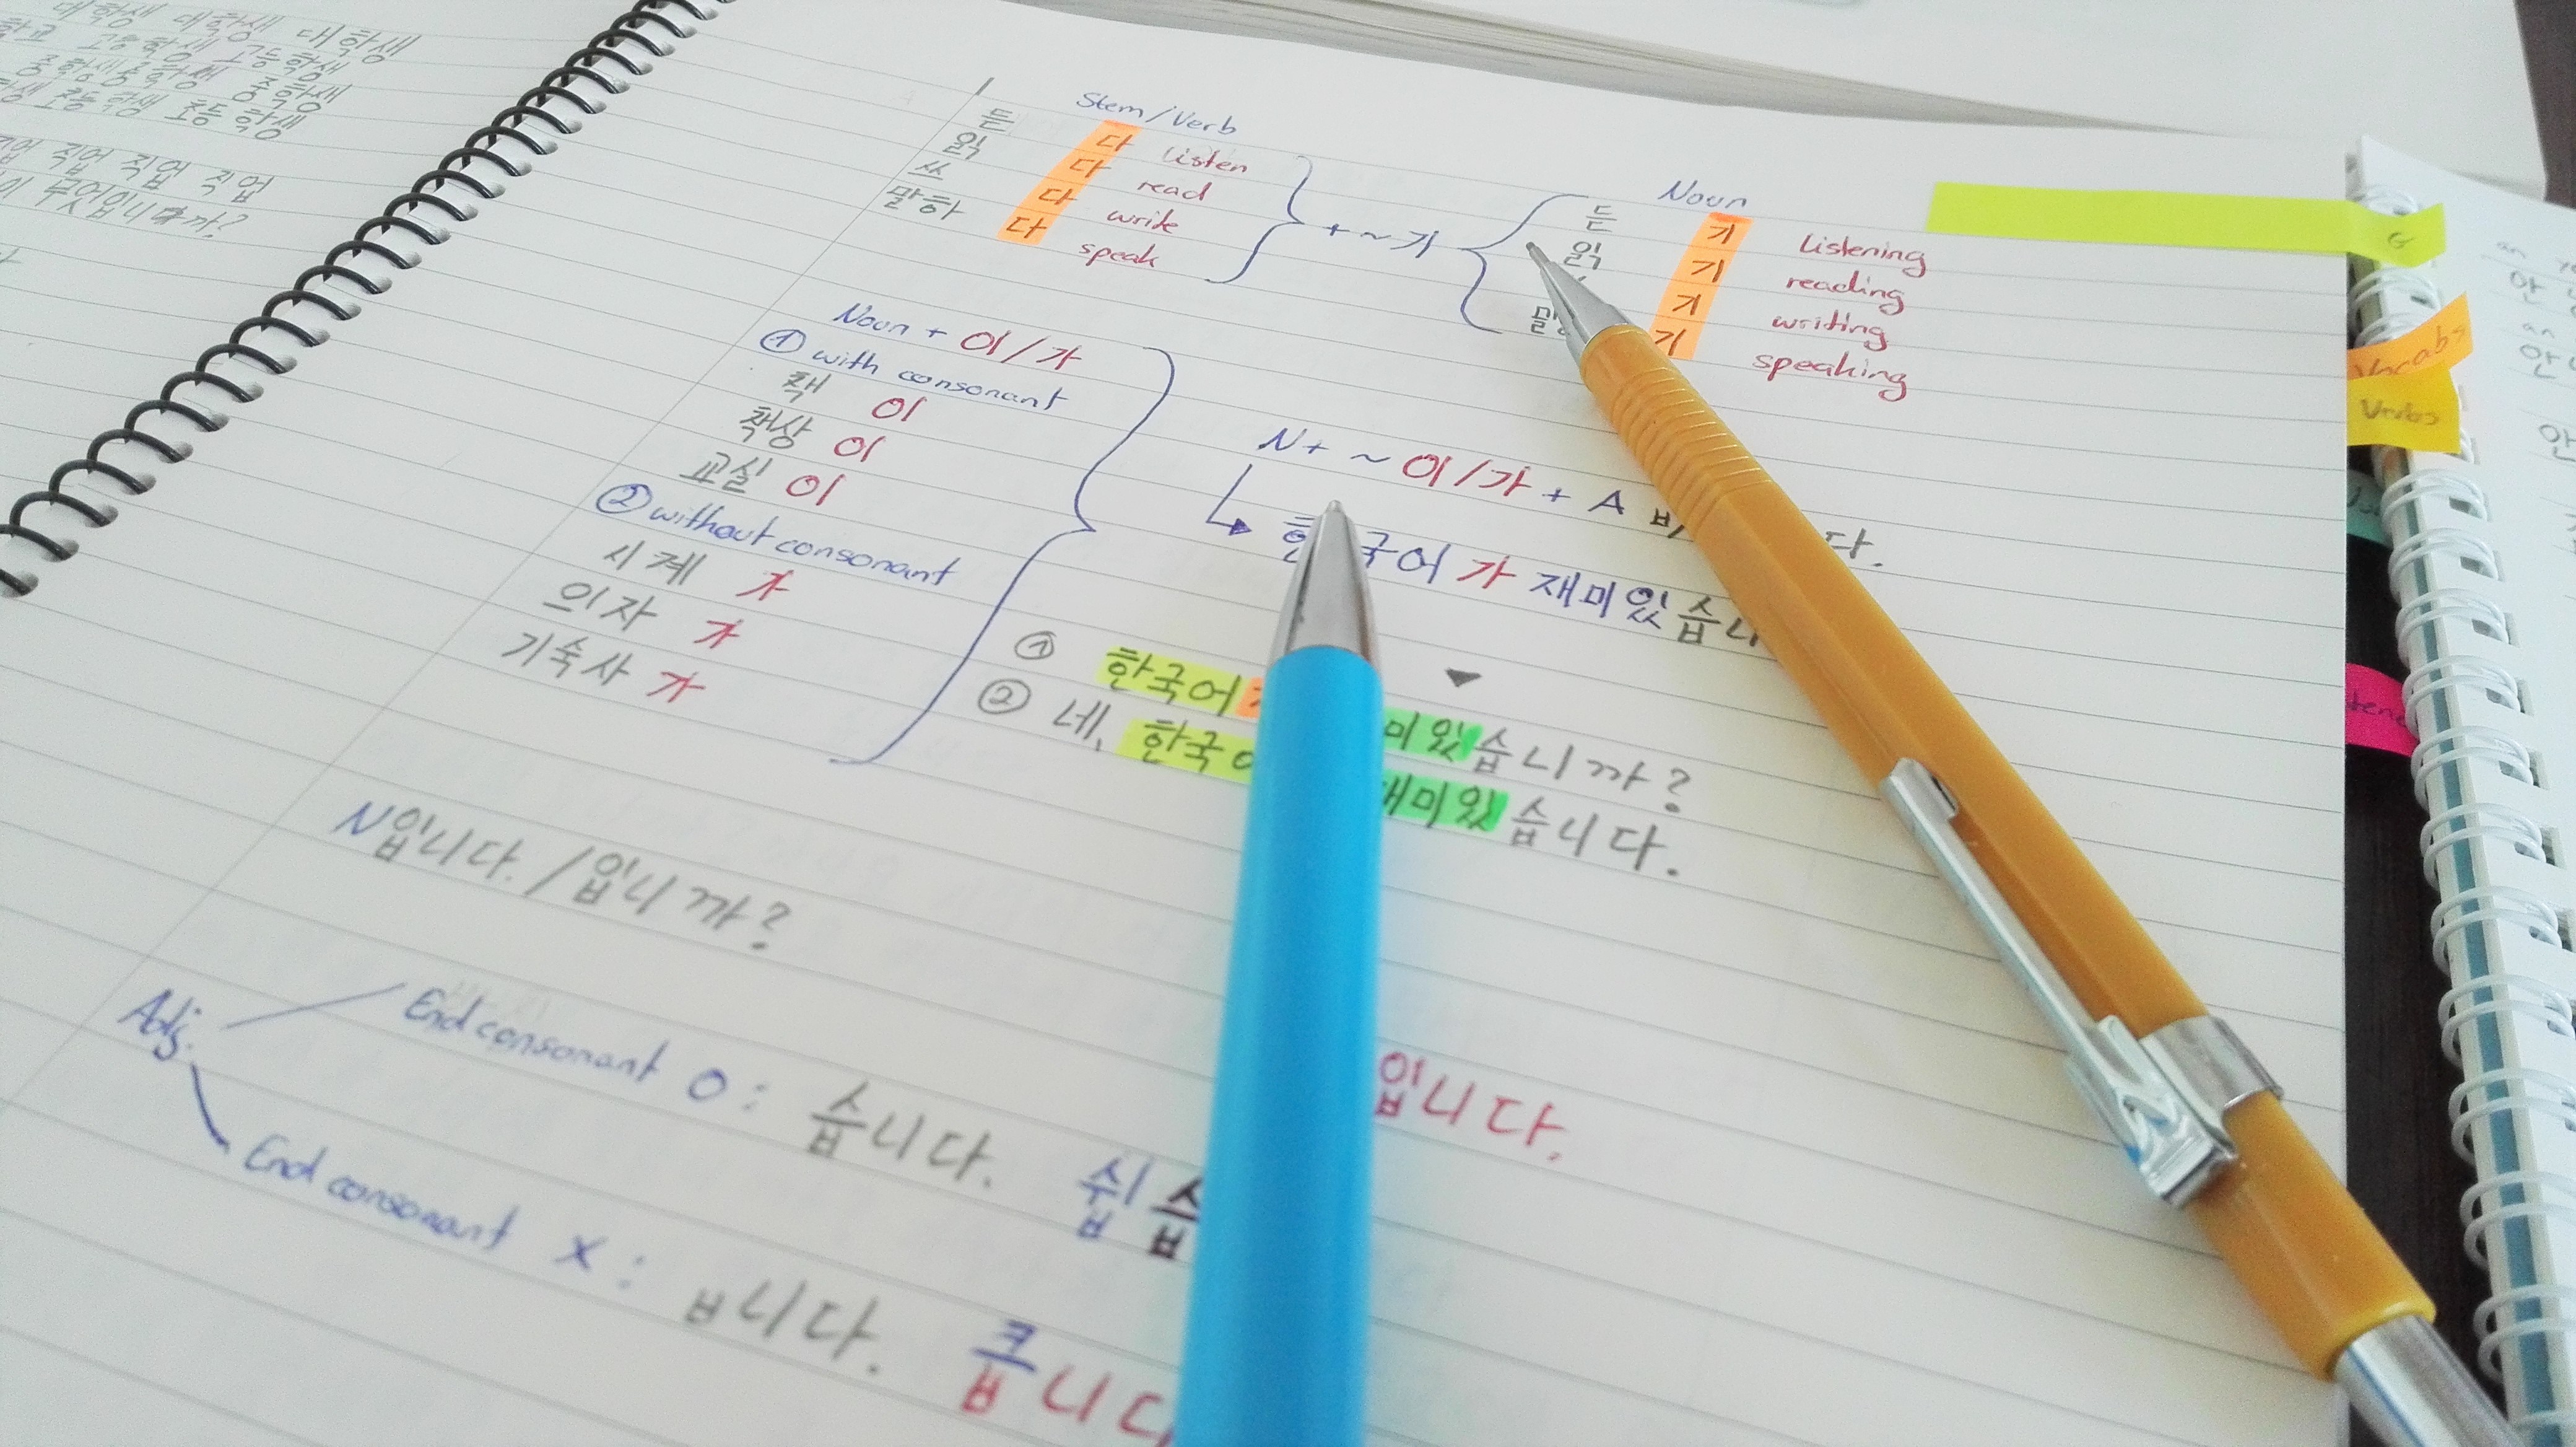 대학생 대학생 대학생
고등학생 고등학생
중학생 중학생
초등학생 초등 학생
직업 직업 직업
무엇입니까?
Stem/Verb
듣다 listen
읽다 read
쓰다 write
말하다 speak
+ ~기
Noun
듣기 listening
읽기 reading
기 writing
기 speaking
Noun + 이/가
① with consonant
책 이
책상 이
교실 이
② without consonant
시계 가
의자 가
기숙사 가
N + ~ 이/가 + A 다.
한국어가 재미있습니
① 한국어 미있습니까?
② 네, 한국어 재미있습니다.
N입니다. / 입니까?
Adj.
End consonant O : 습니다. 쉽습 입니다.
End consonant X : ㅂ니다. 큽니다
G
Vocabs
Verbs